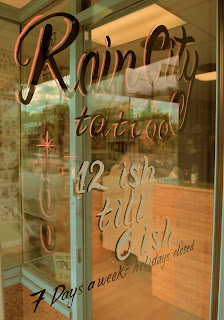 Rain City
tattoo
12 ish
till
6 ish
7 Days a week - holidays closed
OPEN